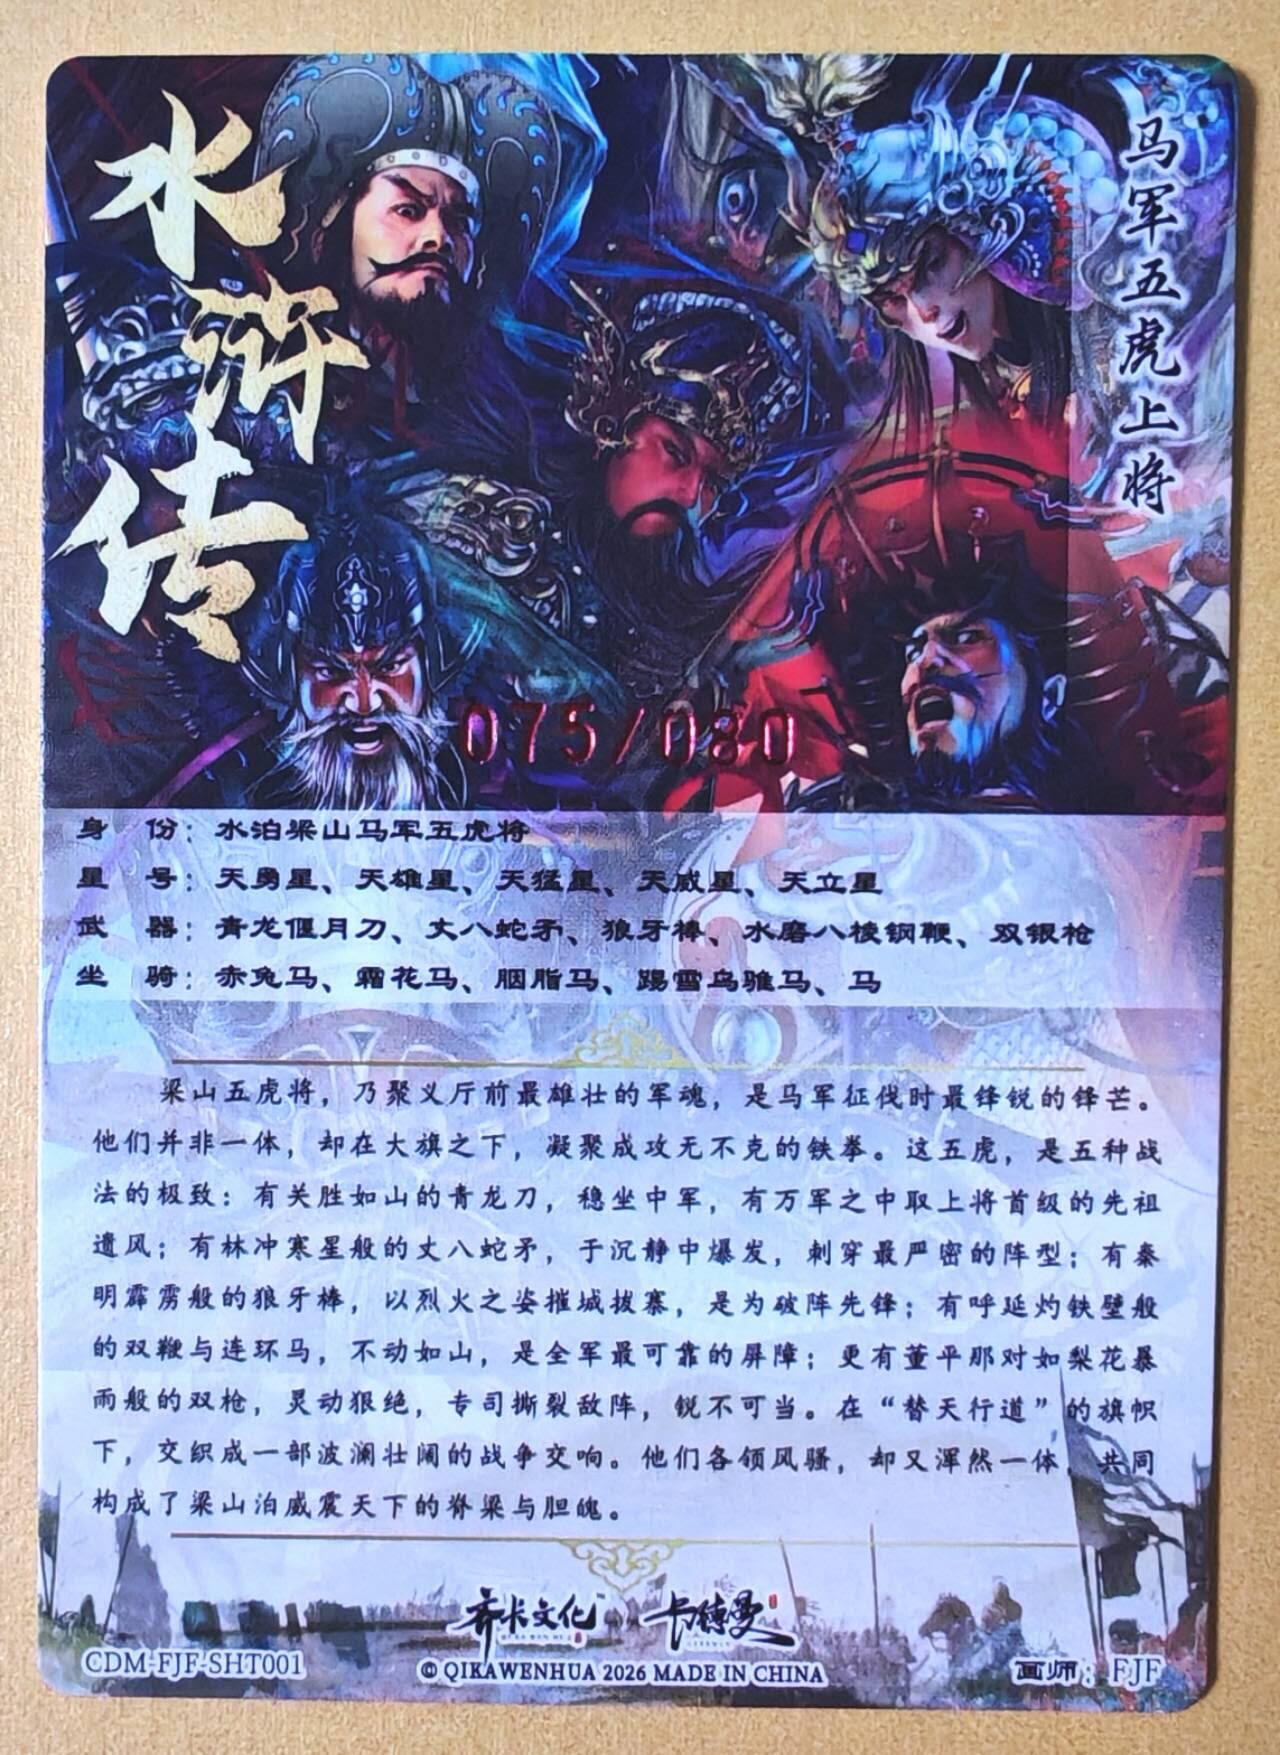 水浒传
马军五虎上将
075/080
身 份：水泊梁山马军五虎将
星 号：天勇星、天雄星、天猛星、天威星、天立星
武 器：青龙偃月刀、丈八蛇矛、狼牙棒、水磨八棱钢鞭、双银枪
坐 骑：赤兔马、霜花马、胭脂马、踢雪乌骓马、马
梁山五虎将，乃聚义厅前最雄壮的军魂，是马军征伐时最锋锐的锋芒。
他们并非一体，却在大旗之下，凝聚成攻无不克的铁拳。这五虎，是五种战
法的极致：有关胜如山的青龙刀，稳坐中军，有万军之中取上将首级的先祖
遗风；有林冲寒星般的丈八蛇矛，于沉静中爆发，刺穿最严密的阵型；有秦
明霹雳般的狼牙棒，以烈火之姿摧城拔寨，是为破阵先锋；有呼延灼铁壁般
的双鞭与连环马，不动如山，是全军最可靠的屏障；更有董平那对如梨花暴
雨般的双枪，灵动狠绝，专司撕裂敌阵，锐不可当。在“替天行道”的旗帜
下，交织成一部波澜壮阔的战争交响。他们各领风骚，却又浑然一体，共同
构成了梁山泊威震天下的脊梁与胆魄。
齐卡文化 卡德曼
CDM-FJF-SHT001
© QIKAWENHUA 2026 MADE IN CHINA
画师：FJF